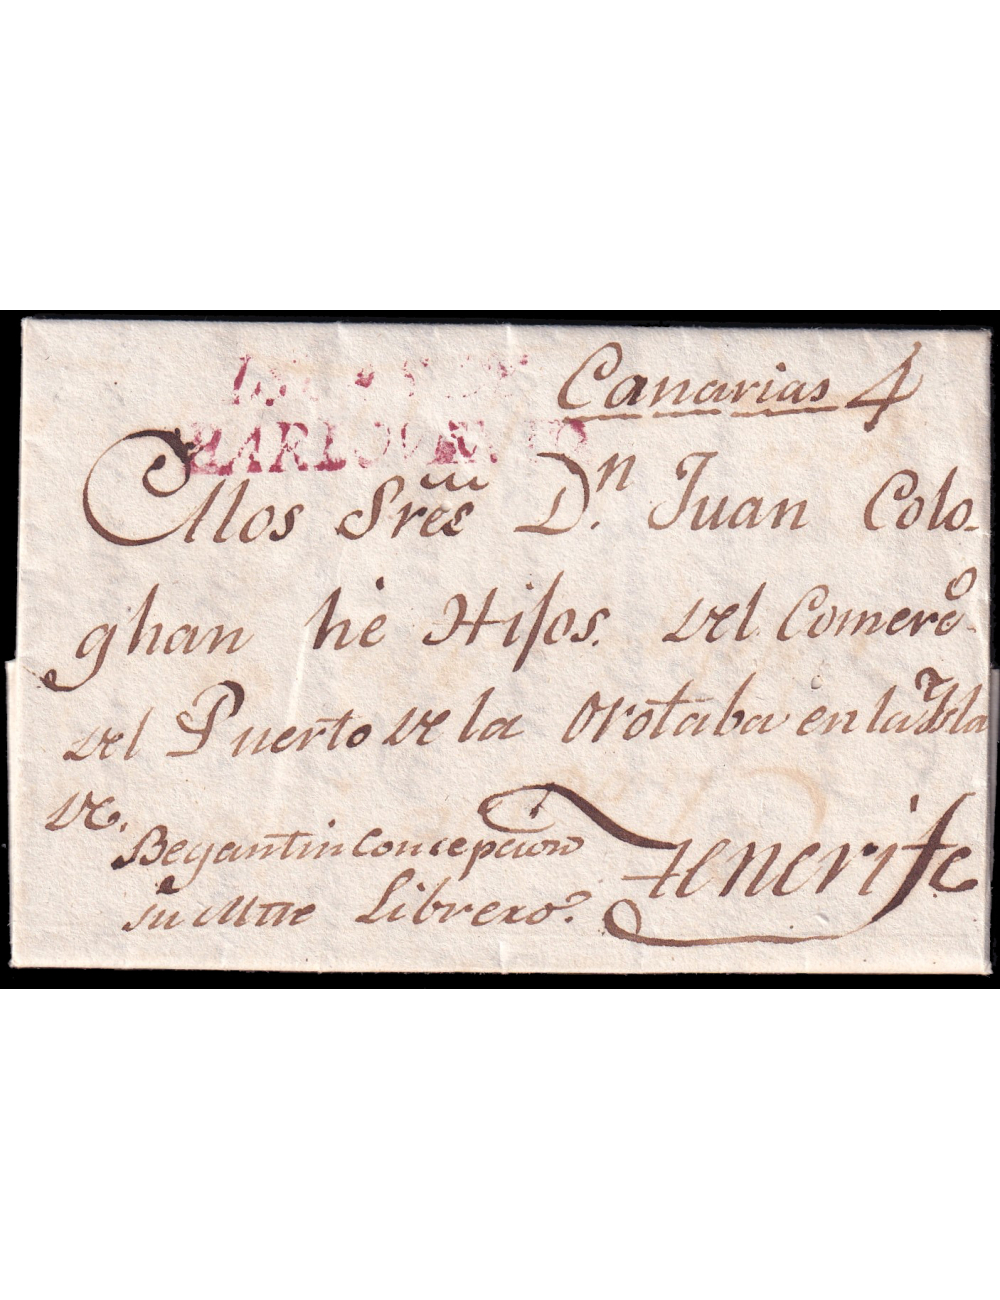 Canarias 4
BARLOVENTO
A los Sres Dn. Juan Colo-
ghan hé Hijos. del Comerco.
del Puerto de la Orotaba en la Isla
de.
Tenerife
Begantin Concepcion
su Mtre Librero